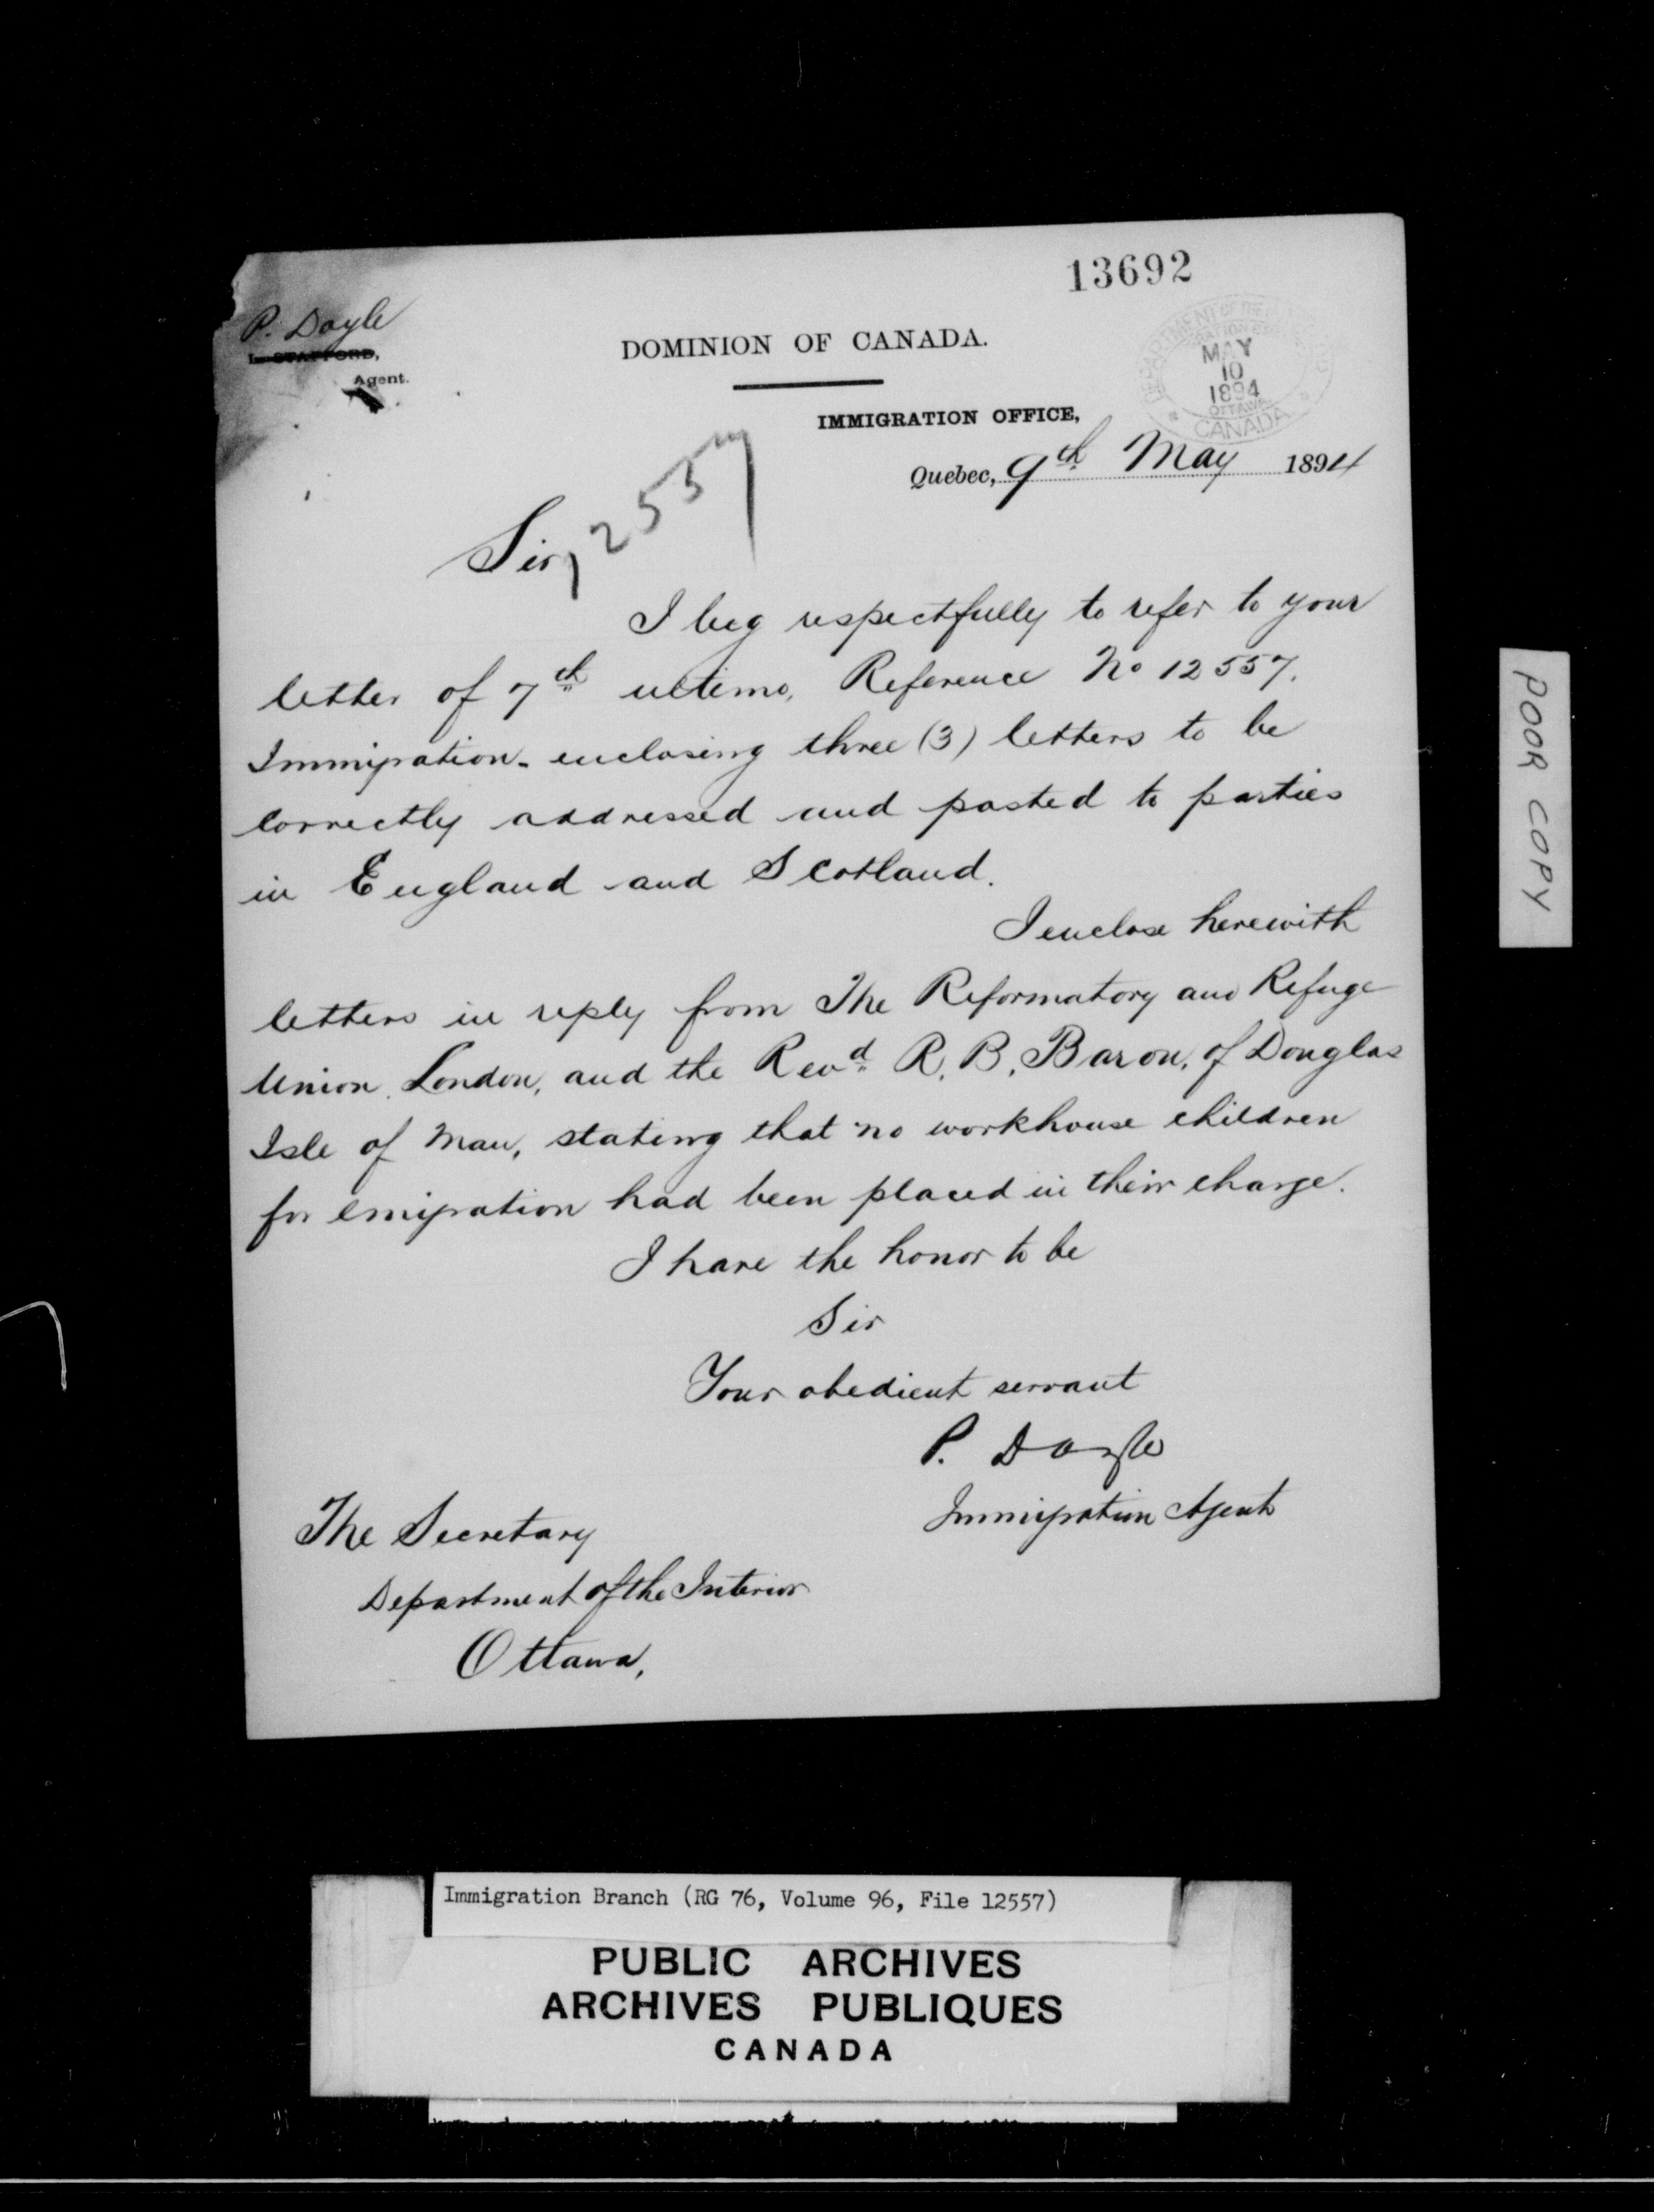 13692
P. Doyle
L. STAFFORD,
Agent.
DOMINION OF CANADA.
DEPARTMENT OF THE
MAY
10
1894
OTTAWA
CANADA
IMMIGRATION OFFICE,
Quebec, 9th May 1894
12557
Sir,
I beg respectfully to refer to your
letter of 7th ultimo, Reference No 12557.
Immigration - enclosing three (3) letters to be
correctly addressed and posted to parties
in England and Scotland.
I enclose herewith
letters in reply from The Reformatory and Refuge
Union, London, and the Revd R. B. Baron, of Douglas
Isle of Man, stating that no workhouse children
for emigration had been placed in their charge.
I have the honor to be
Sir
Your obedient servant
P. Doyle
Immigration Agent
The Secretary
Department of the Interior
Ottawa,
POOR COPY
Immigration Branch (RG 76, Volume 96, File 12557)
PUBLIC ARCHIVES
ARCHIVES PUBLIQUES
CANADA